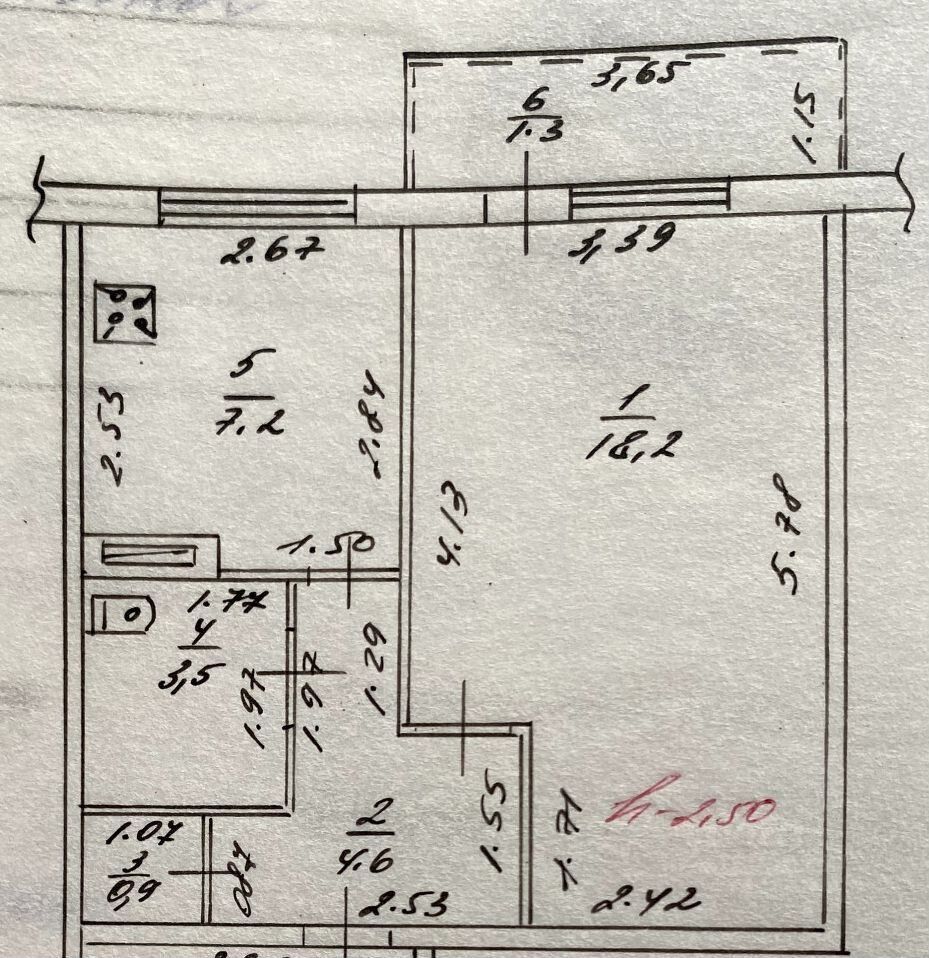 3,65
6
1.3
1.15
2.67
3,39
5
7.2
2.53
2.84
1
18,2
4.13
5.78
1.50
1.77
4
3,5
1.97
1.97
1.29
h-2,50
1.55
1.71
2
4.6
1.07
3
0,9
087
2.53
2.42